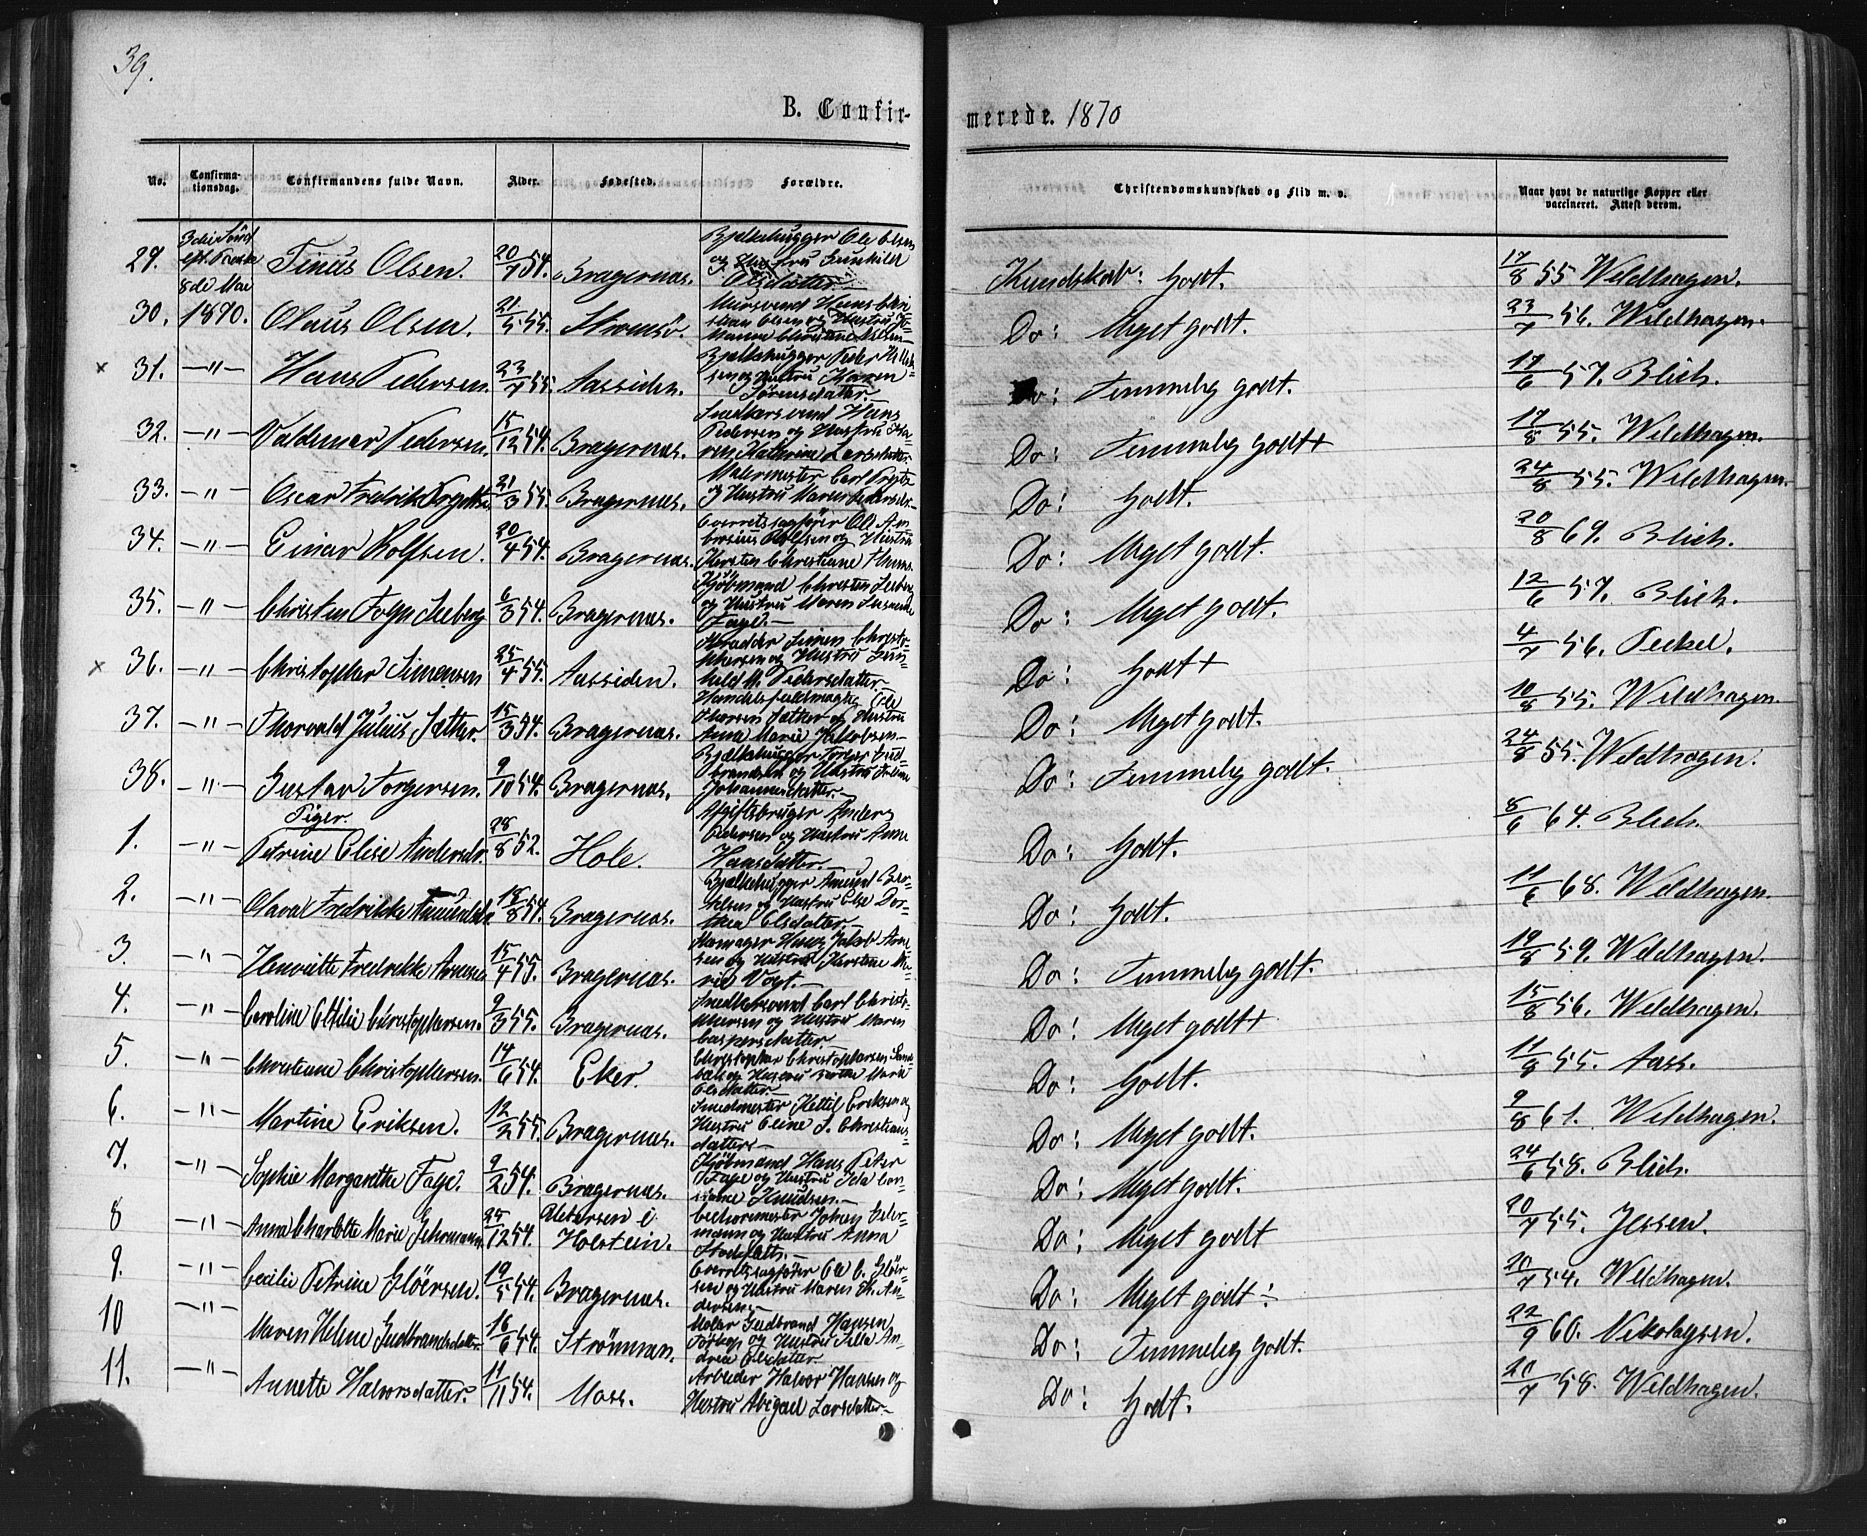 39.
B. Confirmerede. 1870
No. Confirmationsdag. Confirmandens fulde Navn. Alder. Fødested. Forældre. Christendomskundskab og Flid m. v. Naar havt de naturlige Kopper eller vaccineret. Attest derom.
29. 3die Sønd eft. Paaske 8de Mai Tinus Olsen. 20/7 54. Bragernæs. Bjelkehugger Ole Olsen og Hustru Gunhild Olsdatter.— Kundskab: Godt. 17/8 55 Wildhagen.
30. 1870. Olaus Olsen. 21/5 55. Strømsø. Muursvend Hans Christian Olsen og Hustru Christiane Do: Meget godt. 23/7 56. Wildhagen.
× 31. —"— Hans Pedersen. 23/7 55. Aassiden. Bjelkehugger Peder og Hustru Karen Sørensdatter Do: Temmelig godt. 17/6 57. Blich.
32. —"— Valdemar Pedersen. 15/12 54. Bragernæs. Snedkersvend Hans Pedersen og Hustru Karen Kathrine Larsdatter Do: Temmelig godt+ 17/8 55. Wildhagen.
33. —"— Oscar Fredrik 21/3 55 Bragernæs. Malermester Carl og Hustru Maren Do: Godt. 24/8 55. Wildhagen.
34. —"— Einar Rolfsen. 20/4 54. Bragernæs. Overretssagfører Ole Ambrosius Rolfsen og Hustru Kirsten Christiane Do: Meget godt. 20/8 69. Blich.
35. —"— Christen Fogn Seeberg 6/3 54. Bragernæs. Kjøbmand Christen Seeberg og Hustru Maren Susanne Faye.— Do: Meget godt. 12/6 57. Blich.
× 36. —"— Christopher Simensen 25/4 55. Aassiden. Simen Christophersen og Hustru Gunhild M. Pedersdatter. Do: Godt+ 4/7 56. Peckel.
37. —"— Thorvald Julius Sæther. 15/3 54. Bragernæs. Handelsfuldmægtig Ole Thorsen Sæther og Hustru Anna Marie Jakobsen.— Do: Meget godt. 16/8 55. Wildhagen.
38. —"— Gustav Torgersen. 9/10 54. Bragernæs. Bjelkehugger Torger Gudbrandsen og Hustru Johannesdatter.— Do: Temmelig godt. 24/8 55. Wildhagen.
Piger.
1. —"— Petrine Elise Andersdr. 28/8 52. Hole. Afgiftsbruger Anders Pedersen og Hustru Anne Hansdatter.— Do: Godt. 8/6 64. Blich.
2. —"— Olava Fredrikke 18/8 54. Bragernæs. Bjelkehugger Amund og Hustru Else Dorthea Olsdatter.— Do: Godt. 11/6 68. Wildhagen.
3. —"— Henriette Fredrikke Arnesen 15/4 55. Bragernæs. Jakob Arnesen og Hustru Kirstine Marie Vogt.— Do: Temmelig godt. 19/8 59. Wildhagen.
4. —"— Caroline Ottilie Christophersen. 9/3 55. Bragernæs. Snedkersvend Carl Christophersen og Hustru Maren Caspersdatter. Do: Meget godt+ 15/8 56. Wildhagen.
5. —"— Christiane Christophersen. 14/6 54. Eker. Christopher Christophersen og Hustru Marie Olsdatter.— Do: Godt. 11/8 55. Aass.
6. —"— Martine Eriksen. 12/2 55. Bragernæs. Smedmester Kettil Eriksen og Hustru Eline S. Christiansdatter.— Do: Meget godt. 9/8 61. Wildhagen.
7. —"— Sophie Margarethe Faye. 9/2 54. Bragernæs. Kjøbmand Hans Peter Faye og Hustru Ida Knudsen.— Do: Meget godt. 24/6 58. Blich.
8 —"— Anna Charlotte Marie 25/12 54. Uetersen i Holstein. Johan og Hustru Anna Do: Meget godt 20/7 55. Jessen.
9. —"— Cecilie Petrine Gløersen. 19/5 54. Bragernæs. Overretssagfører Ole C. Gløersen og Hustru Maren Th. Andersen.— Do: Meget godt÷ 20/7 54. Wildhagen.
10 —"— Maren Helene Gudbrandsdatter. 16/6 54. Strømmen. Maler Gudbrand Hansen og Hustru Andrea Olsdatter. Do: Temmelig godt. 22/9 60. Nikolaysen.
11. —"— Annette Halvorsdatter. 11/11 54. Moss. Arbeider Halvor Hansen og Hustru Abigael Larsdatter.— Do: Godt. 20/7 58. Wildhagen.